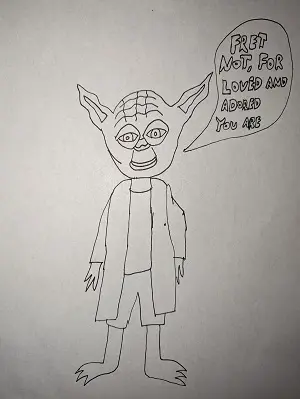 FRET
NOT, FOR
LOVED AND
ADORED
YOU ARE